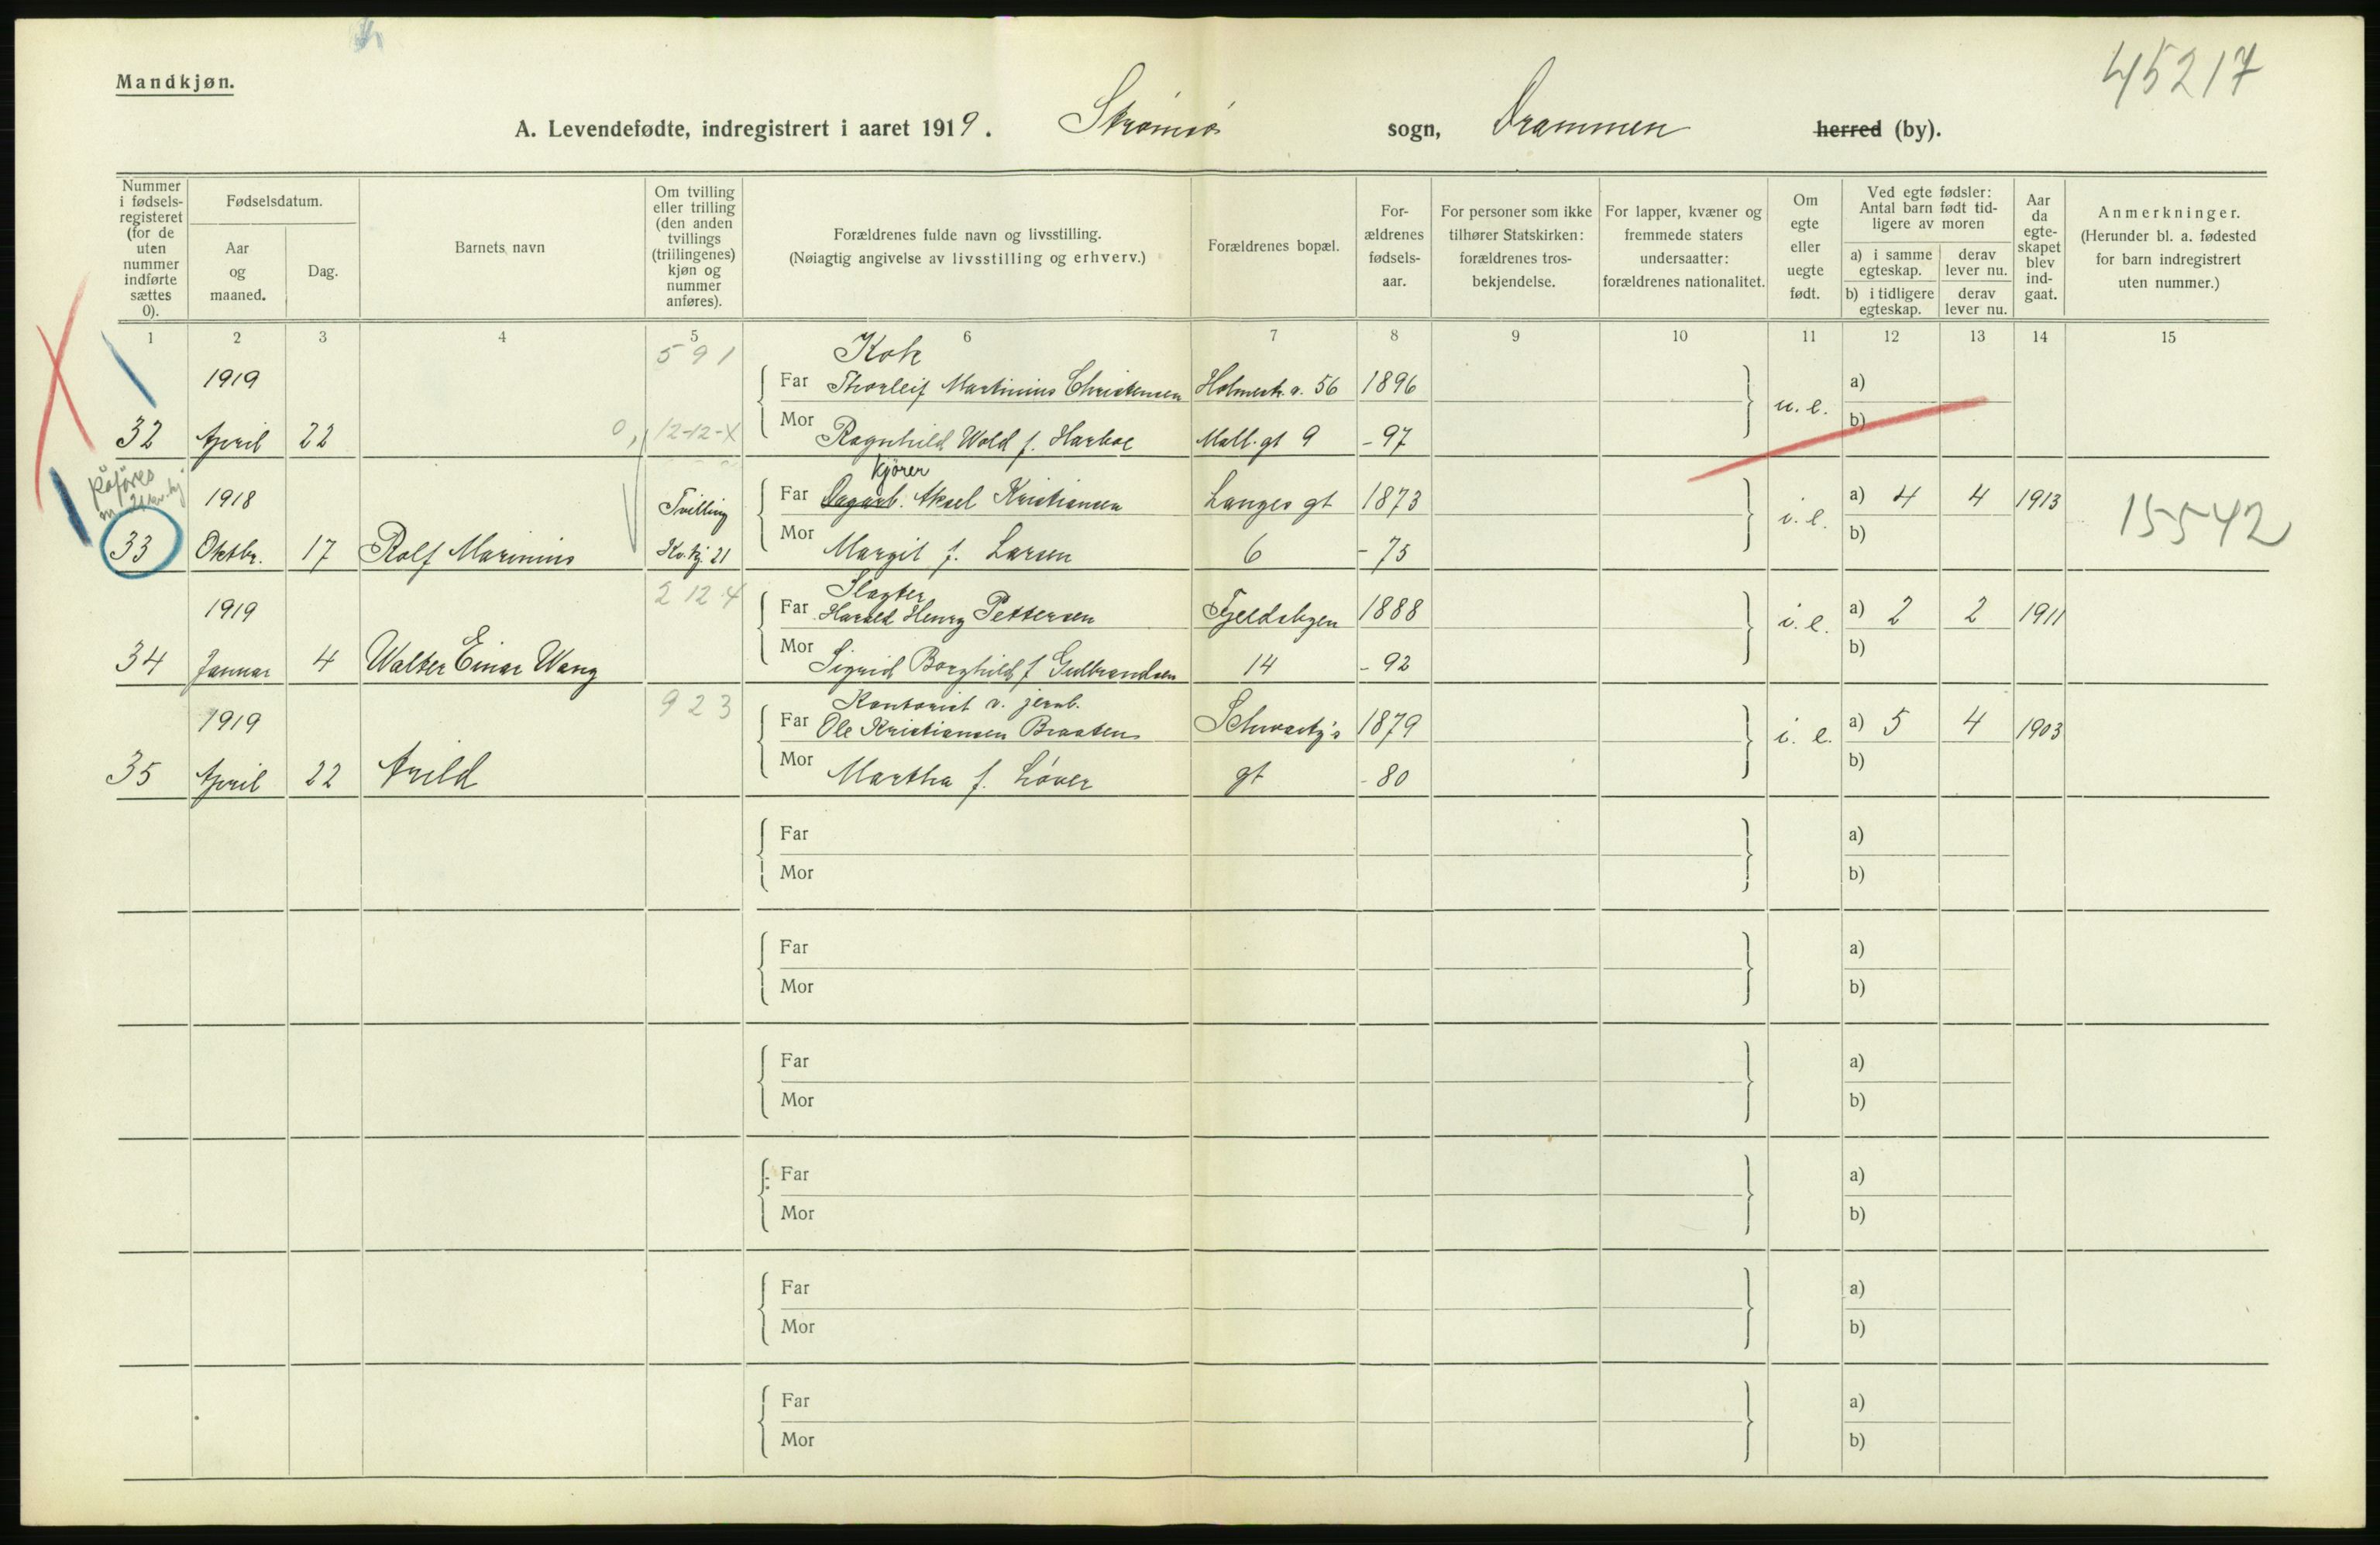 45217
Mandkjøn.
A. Levendefødte, indregistrert i aaret 1919. Strømsø sogn, Drammen herred (by).
Nummer i fødsels-registeret (for de uten nummer indførte sættes 0).
Fødselsdatum.
Aar og maaned.
Dag.
Barnets navn
Om tvilling eller trilling (den anden tvillings (trillingenes) kjøn og nummer anføres).
Forældrenes fulde navn og livsstilling.
(Nøiagtig angivelse av livsstilling og erhverv.)
Forældrenes bopæl.
For-ældrenes fødsels-aar.
For personer som ikke tilhører Statskirken: forældrenes tros-bekjendelse.
For lapper, kvæner og fremmede staters undersaatter: forældrenes nationalitet.
Om egte eller uegte født.
Ved egte fødsler: Antal barn født tid-ligere av moren
a) i samme egteskap.
derav lever nu.
b) i tidligere egteskap.
derav lever nu.
Aar da egte-skapet blev ind-gaat.
Anmerkninger.
(Herunder bl. a. fødested for barn indregistrert uten nummer.)
1 2 3 4 5 6 7 8 9 10 11 12 13 14 15
591 Kok
1919 Far Thorleif Martinius Christensen Holmestr. v. 56 1896 a)
32 April 22 0, 12-12-X Mor Ragnhild Wold f. Harboe Mall. gt 9 -97 u.e. b)
påføres m 21 kv.kj
Kjører
1918 Tvilling Far Dagarb. Aksel Kristiansen Langes gt 1873 i.e. a) 4 4 1913 15542
33 Oktbr. 17 Rolf Marinius Kv.kj. 21 Mor Margit f. Larsen 6 -75 b)
2 12 4 Slagter
1919 Far Harald Henry Pettersen Fjeldsbyen 1888 i.e. a) 2 2 1911
34 Januar 4 Walter Einar Wang Mor Sigrid Borghild f Gulbrandsen 14 -92 b)
923 Kontorist v. jernb.
1919 Far Ole Kristiansen Braaten Schwartz's 1879 i. e. a) 5 4 1903
35 April 22 Arild Mor Martha f. Løver gt -80 b)
Far a)
Mor b)
Far a)
Mor b)
Far a)
Mor b)
Far a)
Mor b)
Far a)
Mor b)
Far a)
Mor b)